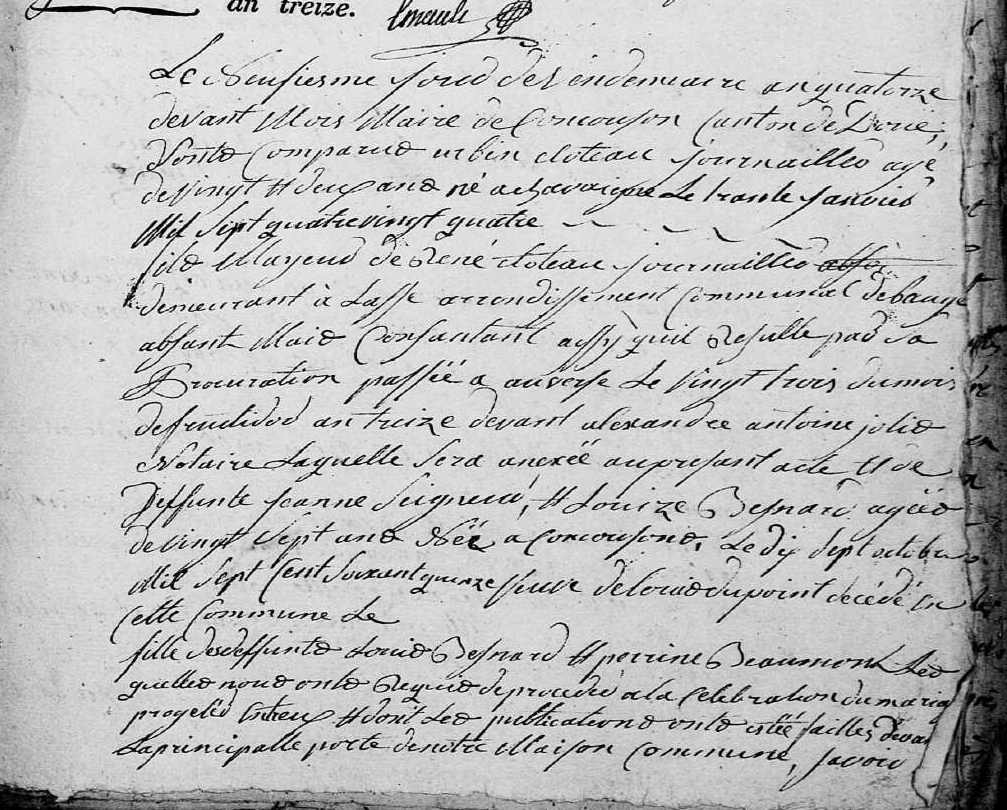 an treize.
Le Neufiesme Jour de Vendemiaire an quatorze
devant Mois Maire de Concouson Canton de Doué,
Sonts Comparus urbin cloteau Journaillés agé
de Vingt et deux ans né a chavaigne Le trante Janvies
Mil Sept quatrevingt quatre
fils Mageur de René cloteau Journaillés
demeurant à Lasse arrondissement Communal de bauge
absant Mais Consantant assÿ quil Resulte par Sa
Procuration passéë a auverse Le Vingt trois du mois
de frutidor an treize devant alexandre antoine jolis
Notaire Laquelle sera anexéë au presant acte et de
deffunte Jeanne Seigneur, et Louize Besnard agéës
de Vingt Sept ans Néë a Concousons, Le dix Sept octobre
Mil Sept Cent Soixant quinze veuve de Louis dupoint décédé En
Cette Commune Le
fille des deffunts Louis Besnard et perrine Beaumont Les
quelles nous onts Requis de proceder a la Celebration du mariag
progetés Entreux et dont Les publications onts estéë faittes devan
La principalle porte de notre Maison Commune, savoir